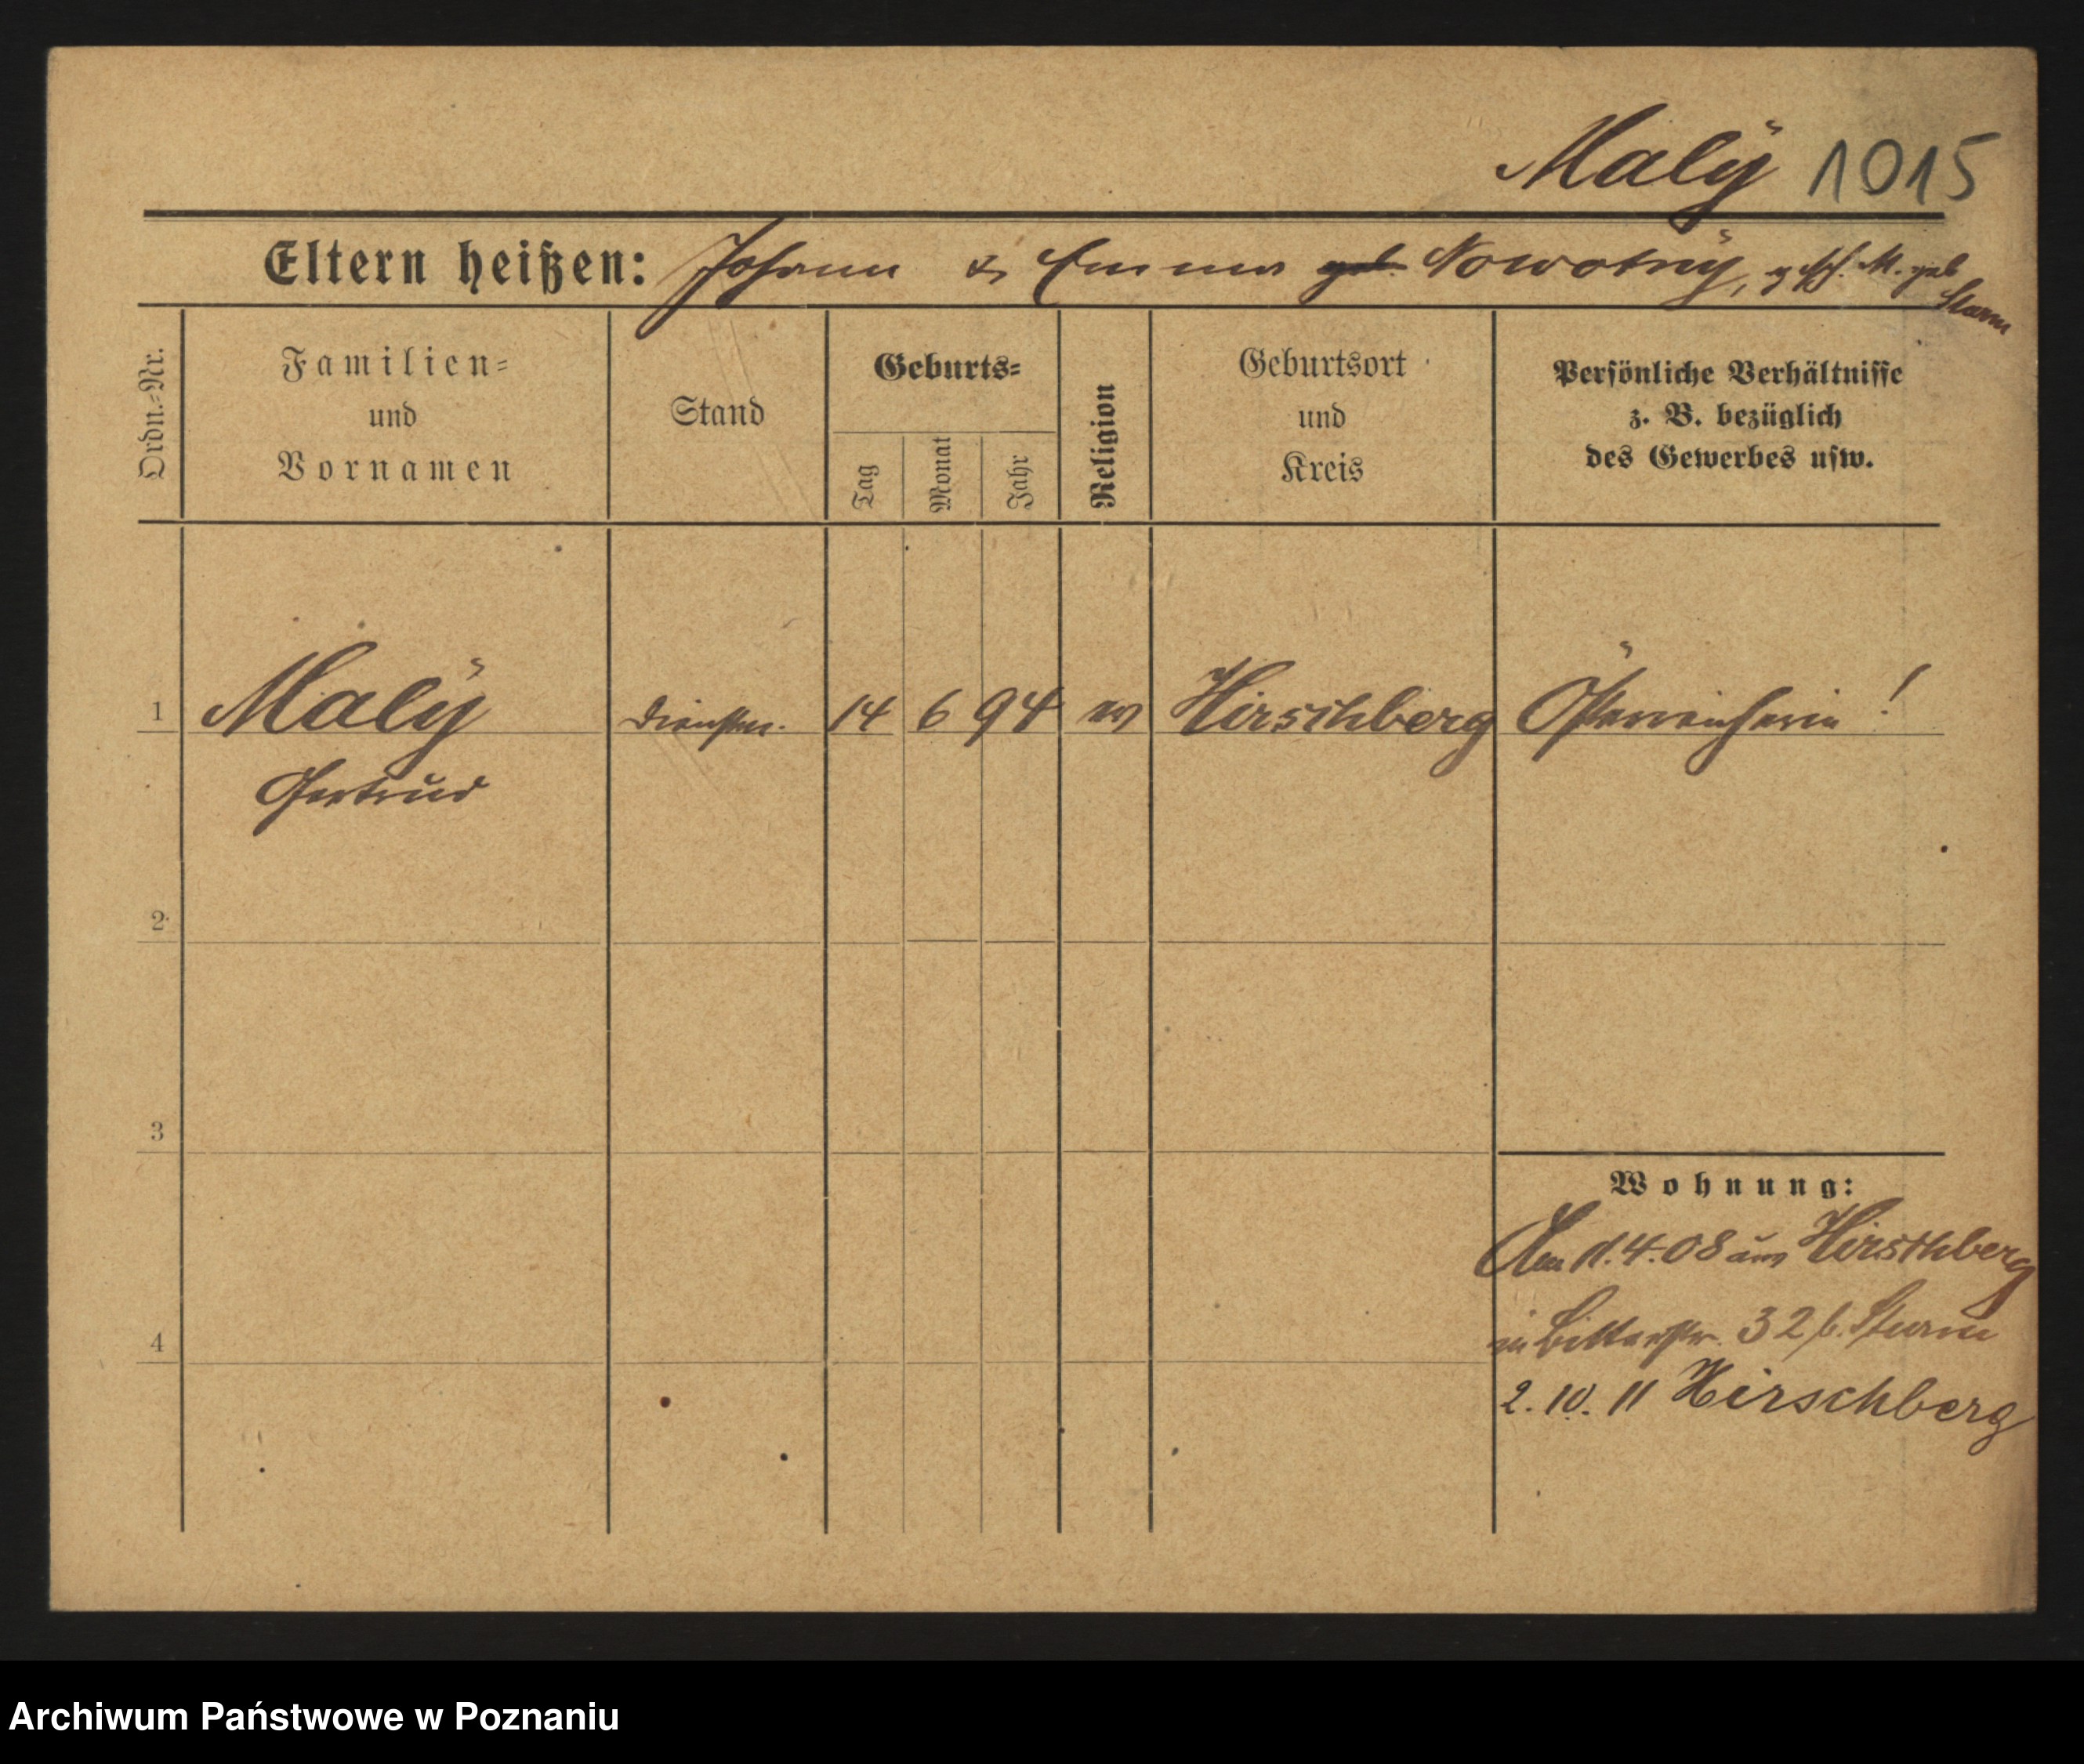 Malÿ 1015
Eltern heißen: Johann & Emma geb. Nowotnÿ, gesch. M. geb
Sturm
Ordn.-Nr.
Familien-
und
Vornamen
Stand
Geburts-
Tag
Monat
Jahr
Religion
Geburtsort
und
Kreis
Persönliche Verhältnisse
z. B. bezüglich
des Gewerbes usw.
1 Malÿ 14 6 94 ev Hirschberg Österreicherin!
Gertrud
2
3
Wohnung:
4.08 aus Hirschberg
in Bitterstr. 32 b. Sturm
4
2.10.11 Hirschberg
Archiwum Państwowe w Poznaniu